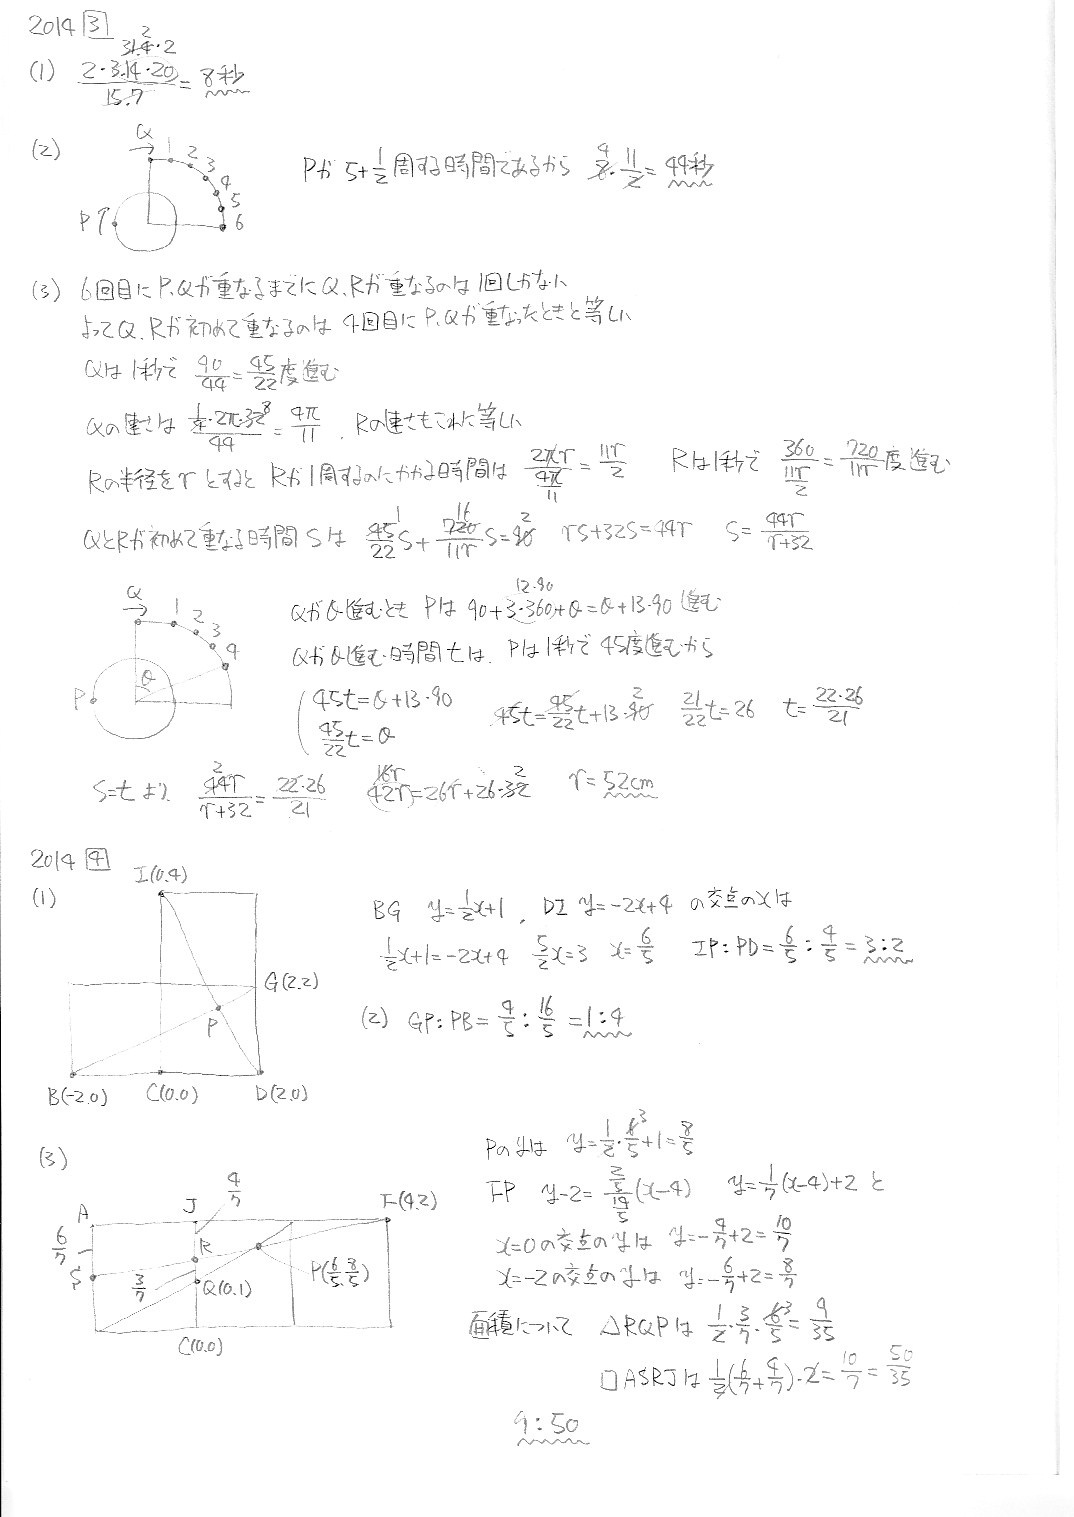 2014 3
(1) 2·3.14·20/15.7 = 8秒
31.4·2
2
(2)
Q
1
2
3
4
5
6
P
Pが 5+1/2周する時間であるから 8·11/2=44秒
4
(3) 6回目にP,Qが重なるまでにQ,Rが重なるのは1回しかない
よってQ,Rが初めて重なるのは 4回目にP,Qが重なったときと等しい
Qは1秒で 90/44=45/22度進む
Qの速さは 1/4·2π·32/44=4π/11, Rの速さもこれに等しい
8
Rの半径をrとすると Rが1周するのにかかる時間は 2πr/(4π/11)=11r/2 Rは1秒で 360/(11r/2)=720/11r度進む
QとRが初めて重なる時間Sは 45/22S+720/11rS=90 rS+32S=44r S=44r/(r+32)
1
16
2
Q
1
2
3
4
θ
P
Qがθ進むとき Pは 90+3·360+θ=θ+13·90 進む
12·90
Qがθ進む時間tは、Pは1秒で45度進むから
45t=θ+13·90
45/22t=θ
45t=45/22t+13·90 21/22t=26 t=22·26/21
2
S=tより 44r/(r+32)=22·26/21 42r=26r+26·32 r=52cm
2
16r
2
2014 4
(1)
I(0,4)
G(2,2)
P
B(-2,0) C(0,0) D(2,0)
BG y=1/2x+1, DI y=-2x+4 の交点のxは
1/2x+1=-2x+4 5/2x=3 x=6/5 IP:PD=6/5:4/5=3:2
(2) GP:PB=4/5:16/5=1:4
(3)
A
J
4/7
F(4,2)
6/7
R
S
3/7
Q(0,1)
P(6/5,8/5)
C(0,0)
Pのyは y=1/2·6/5+1=8/5
3
FP y-2=(2/5)/(14/5)(x-4) y=1/7(x-4)+2 と
x=0の交点のyは y=-4/7+2=10/7
x=-2の交点のyは y=-6/7+2=8/7
面積について △RQPは 1/2·3/7·6/5=9/35
3
□ASRJは 1/2(6/7+4/7)·2=10/7=50/35
9:50